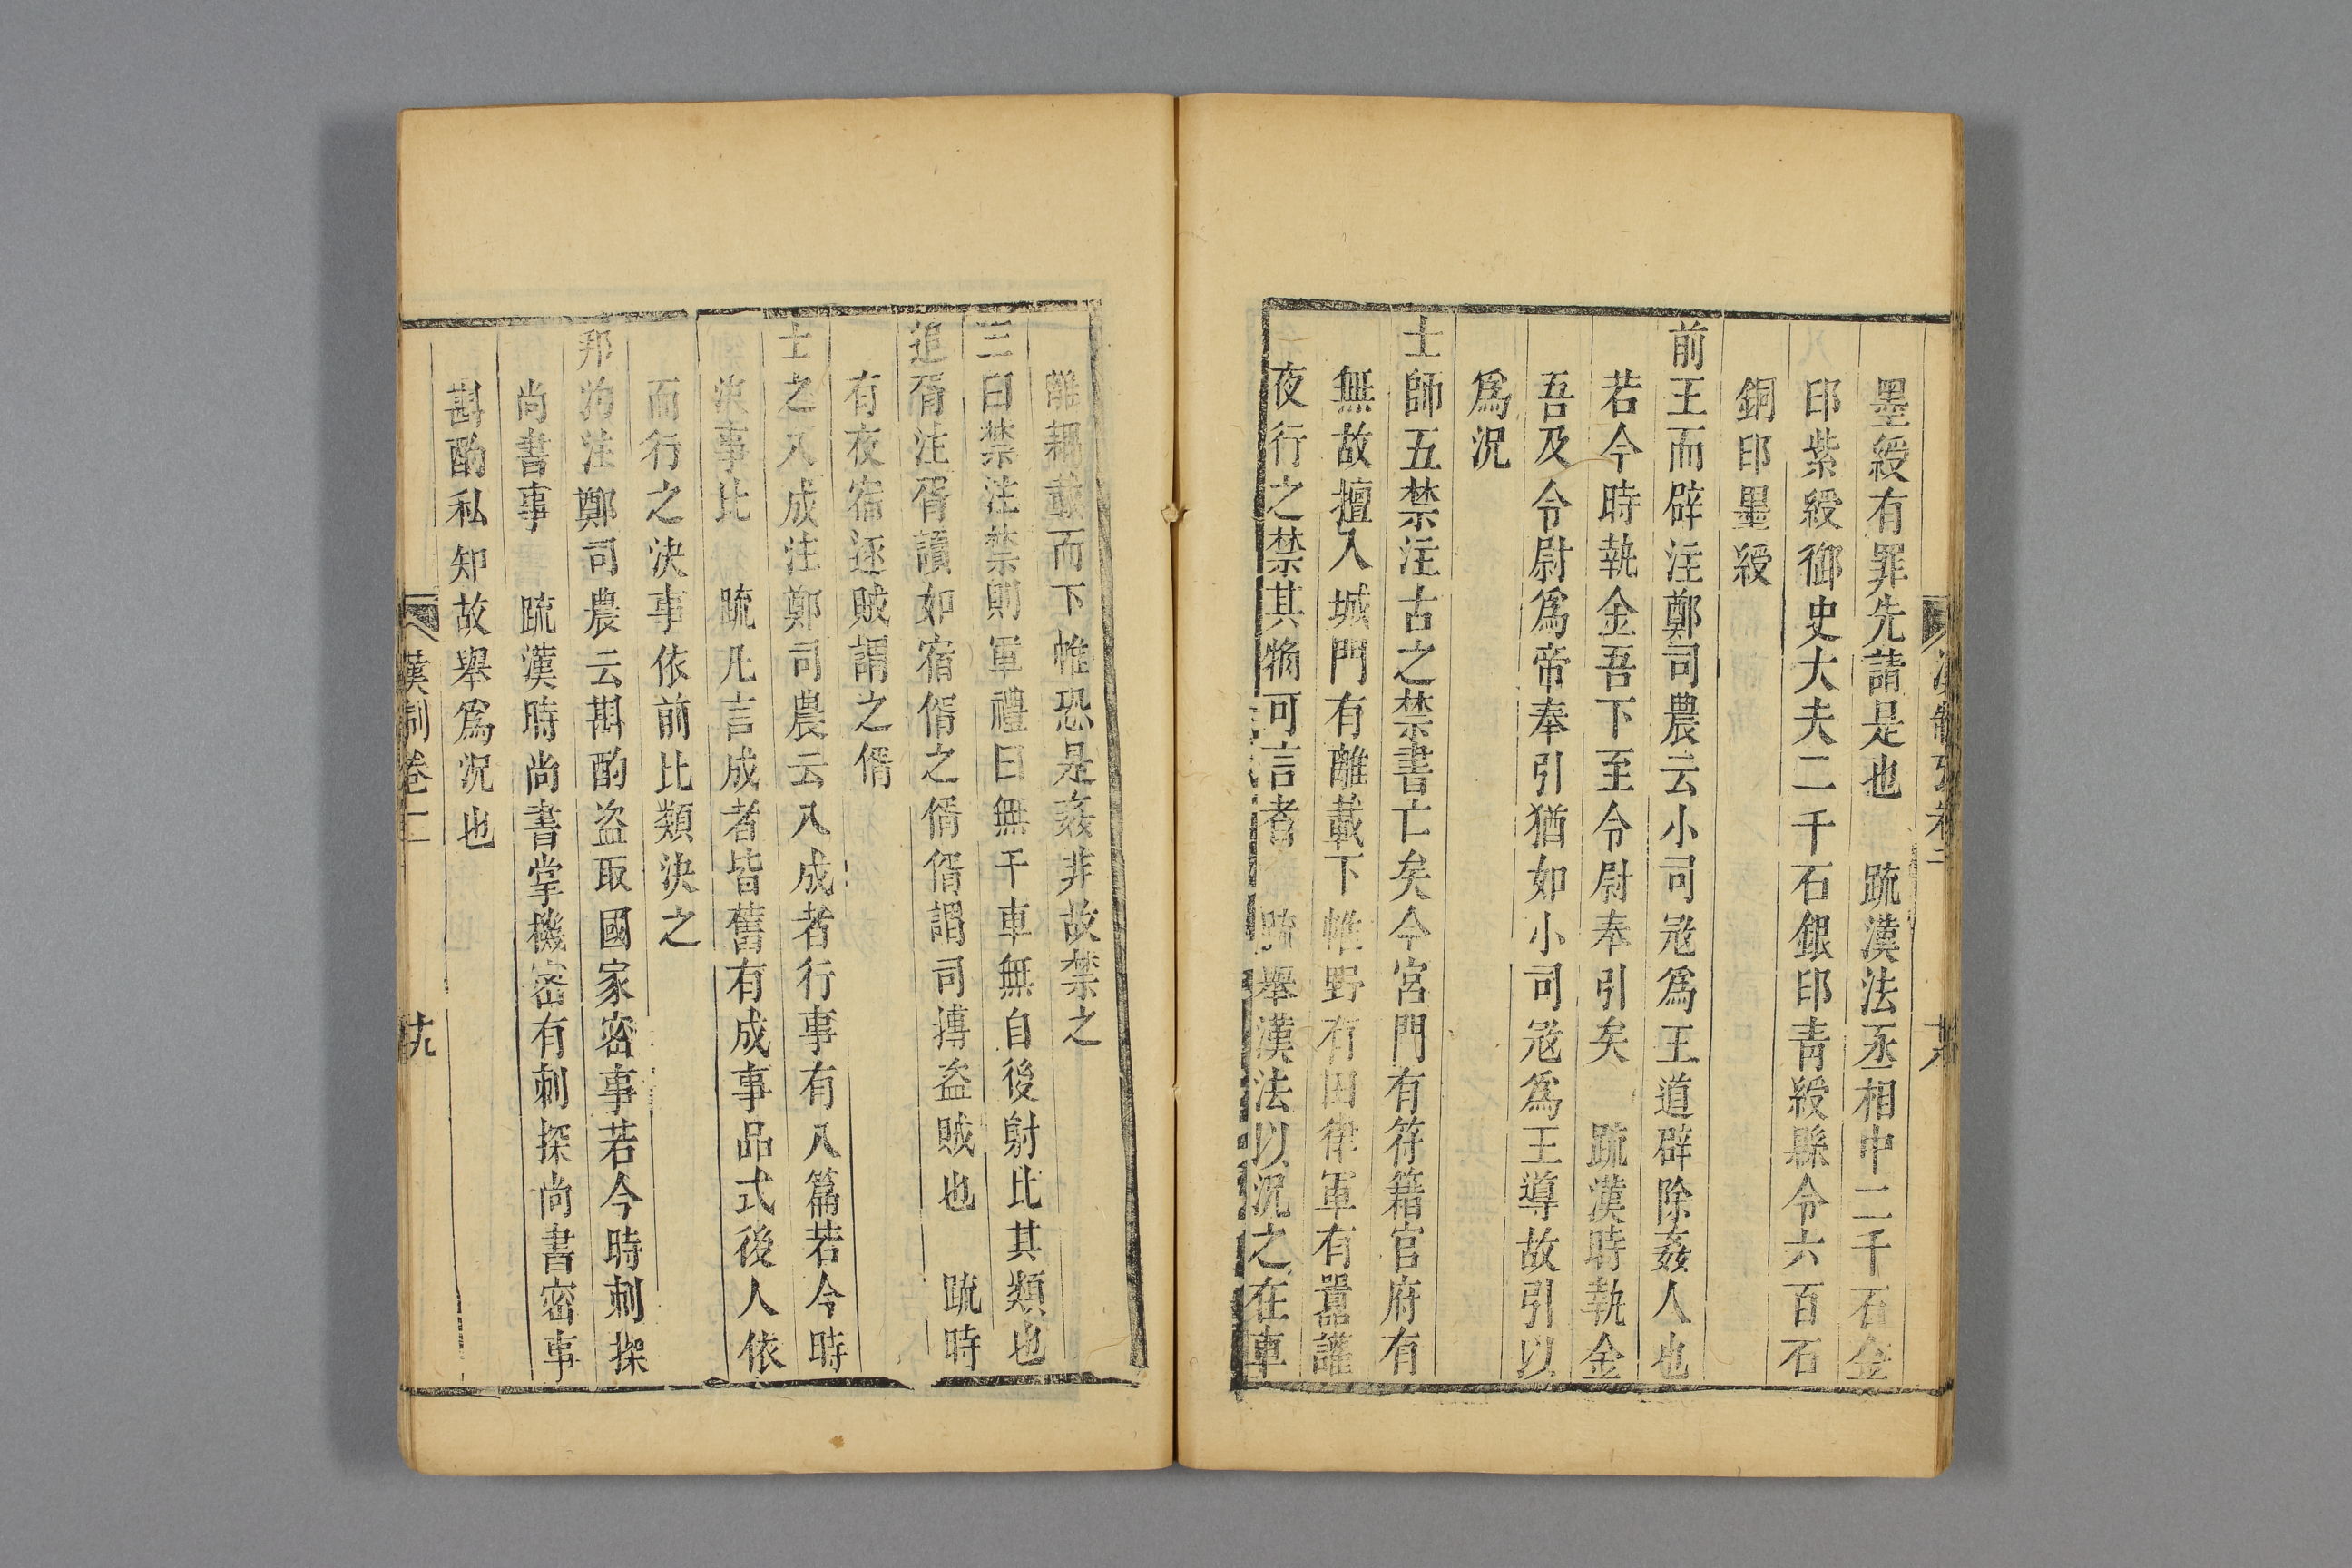 墨綬有罪先請是也　疏漢法丞相中二千石金
印紫綬御史大夫二千石銀印青綬縣令六百石
銅印墨綬
前王而辟注鄭司農云小司𡨥爲王道辟除姦人也
若今時執金吾下至令尉奉引矣　疏漢時執金
吾及令尉爲帝奉引猶如小司𡨥爲王導故引以
爲況
士師五禁注古之禁書亡矣今宮門有符籍官府有
無故擅入城門有離載下帷野有田律軍有囂讙
夜行之禁其觕可言者　疏舉漢法以況之在車
離耦載而下帷恐是姦非故禁之
三曰禁注禁則軍禮曰無干車無自後射比其類也
追胥注胥讀如宿偦之偦偦謂司搏盗賊也　疏時
有夜宿逐賊謂之偦
士之八成注鄭司農云八成者行事有八篇若今時
決事比　疏凡言成者皆舊有成事品式後人依
而行之決事依前比類決之
邦汋注鄭司農云斟酌盗取國家密事若今時刺探
尚書事　疏漢時尚書掌機密有刺探尚書密事
斟酌私知故舉爲況也
漢制卷二